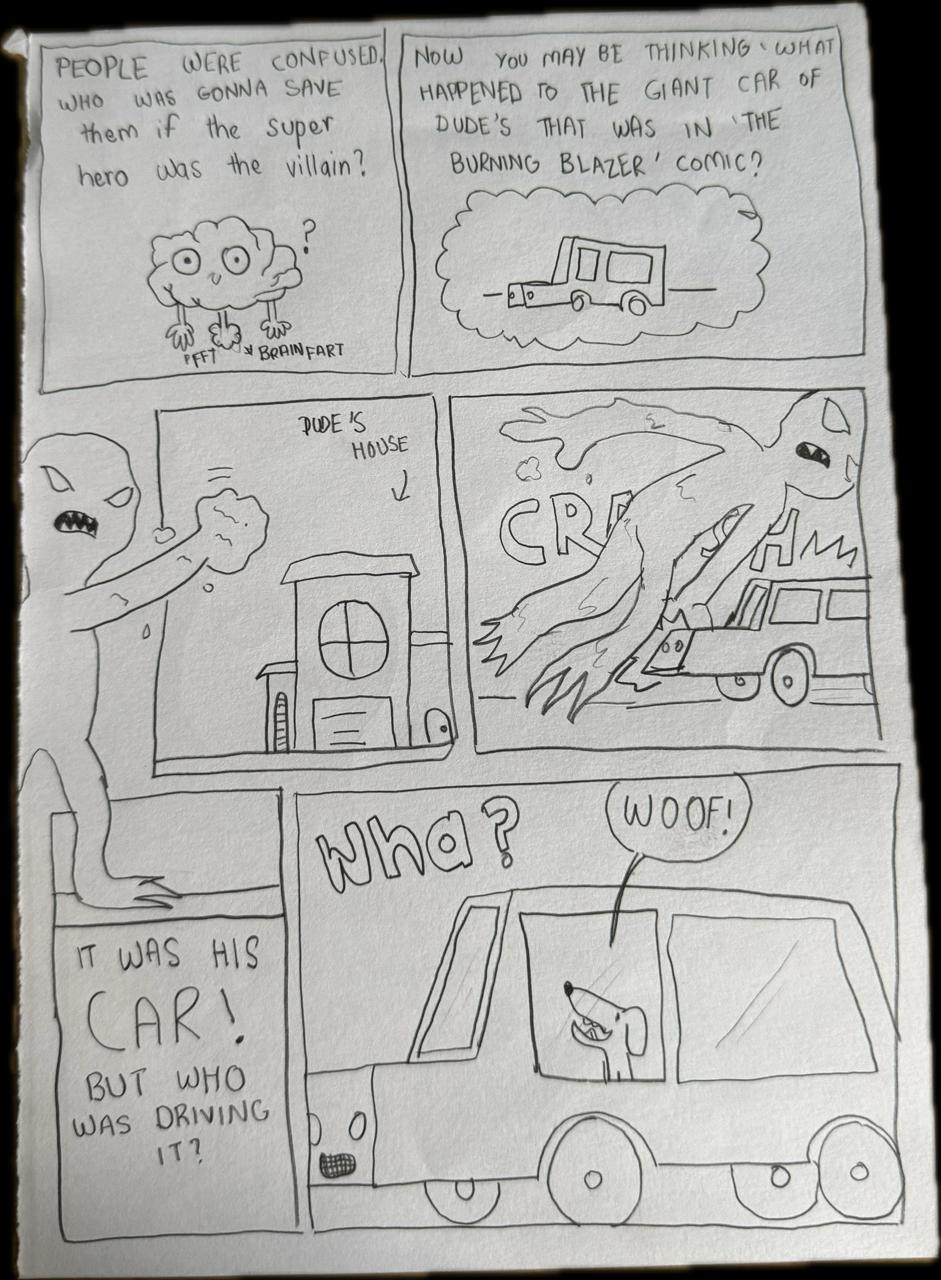 PEOPLE WERE CONFUSED.
WHO WAS GONNA SAVE
them if the super
hero was the villain?
?
PFFT
BRAINFART
NOW YOU MAY BE THINKING 'WHAT
HAPPENED TO THE GIANT CAR OF
DUDE'S THAT WAS IN 'THE
BURNING BLAZER' COMIC?
DUDE'S
HOUSE
CRASH
IT WAS HIS
CAR!
BUT WHO
WAS DRIVING
IT?
Wha?
WOOF!